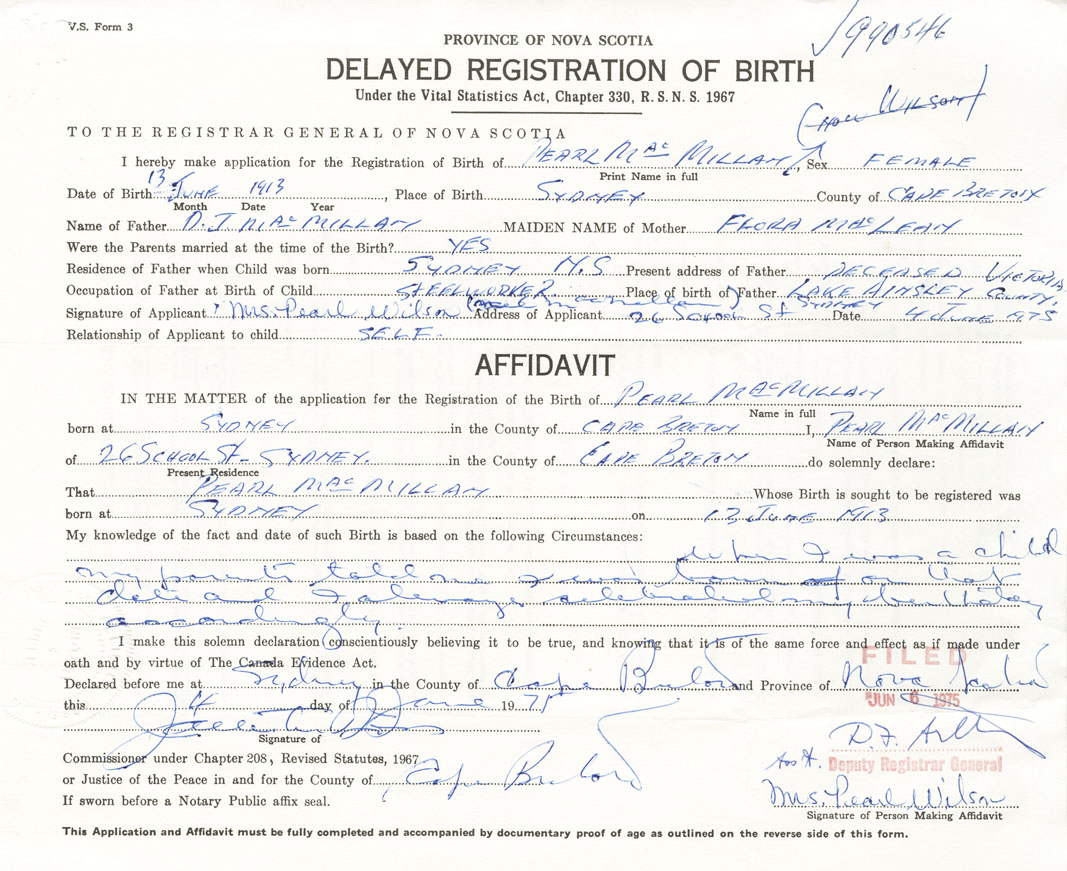 V.S. Form 3
1990546
PROVINCE OF NOVA SCOTIA
DELAYED REGISTRATION OF BIRTH
Under the Vital Statistics Act, Chapter 330, R. S. N. S. 1967
(now WILSON)
TO THE REGISTRAR GENERAL OF NOVA SCOTIA
I hereby make application for the Registration of Birth of PEARL MacMILLAN, Sex FEMALE
Print Name in full
Date of Birth 13 JUNE 1913, Place of Birth SYDNEY County of CAPE BRETON
Month Date Year
Name of Father D.J. MacMILLAN MAIDEN NAME of Mother FLORA MacLEAN
Were the Parents married at the time of the Birth? YES
Residence of Father when Child was born SYDNEY N.S Present address of Father DECEASED
Occupation of Father at Birth of Child STEELWORKER Place of birth of Father LAKE AINSLEY VICTORIA COUNTY.
Signature of Applicant Mrs. Pearl Wilson Address of Applicant 26 SCHOOL St SYDNEY Date 4 JUNE 1975
Relationship of Applicant to child SELF.
AFFIDAVIT
IN THE MATTER of the application for the Registration of the Birth of PEARL MacMILLAN
Name in full
born at SYDNEY in the County of CAPE BRETON I, PEARL MacMILLAN
Name of Person Making Affidavit
of 26 SCHOOL St- SYDNEY. in the County of CAPE BRETON do solemnly declare:
Present Residence
That PEARL MacMILLAN Whose Birth is sought to be registered was
born at SYDNEY on 13 JUNE 1913
My knowledge of the fact and date of such Birth is based on the following Circumstances:
when I was a child
my parents told me I was born on that
date and I always celebrated my birthday
accordingly.
I make this solemn declaration conscientiously believing it to be true, and knowing that it is of the same force and effect as if made under
oath and by virtue of The Canada Evidence Act.
Declared before me at Sydney in the County of Cape Breton and Province of Nova Scotia
this 4 day of June 1975
FILED
JUN 6 1975
Signature of
Commissioner under Chapter 208, Revised Statutes, 1967
or Justice of the Peace in and for the County of Cape Breton
If sworn before a Notary Public affix seal.
Deputy Registrar General
Mrs. Pearl Wilson
Signature of Person Making Affidavit
This Application and Affidavit must be fully completed and accompanied by documentary proof of age as outlined on the reverse side of this form.